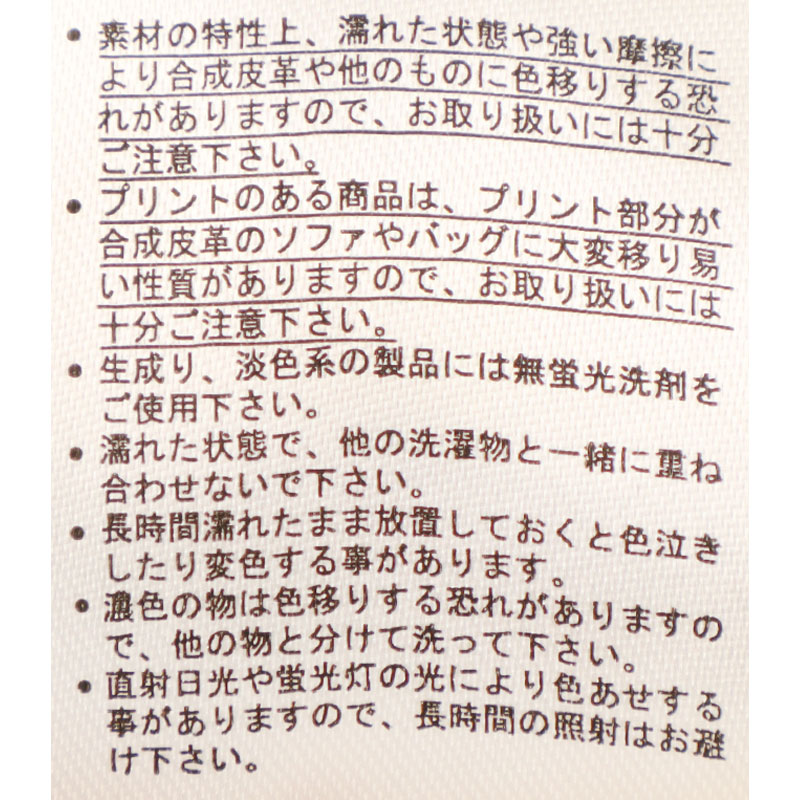 • 素材の特性上、濡れた状態や強い摩擦に
より合成皮革や他のものに色移りする恐
れがありますので、お取り扱いには十分
ご注意下さい。
• プリントのある商品は、プリント部分が
合成皮革のソファやバッグに大変移り易
い性質がありますので、お取り扱いには
十分ご注意下さい。
• 生成り、淡色系の製品には無蛍光洗剤を
ご使用下さい。
• 濡れた状態で、他の洗濯物と一緒に重ね
合わせないで下さい。
• 長時間濡れたまま放置しておくと色泣き
したり変色する事があります。
• 濃色の物は色移りする恐れがありますの
で、他の物と分けて洗って下さい。
• 直射日光や蛍光灯の光により色あせする
事がありますので、長時間の照射はお避
け下さい。